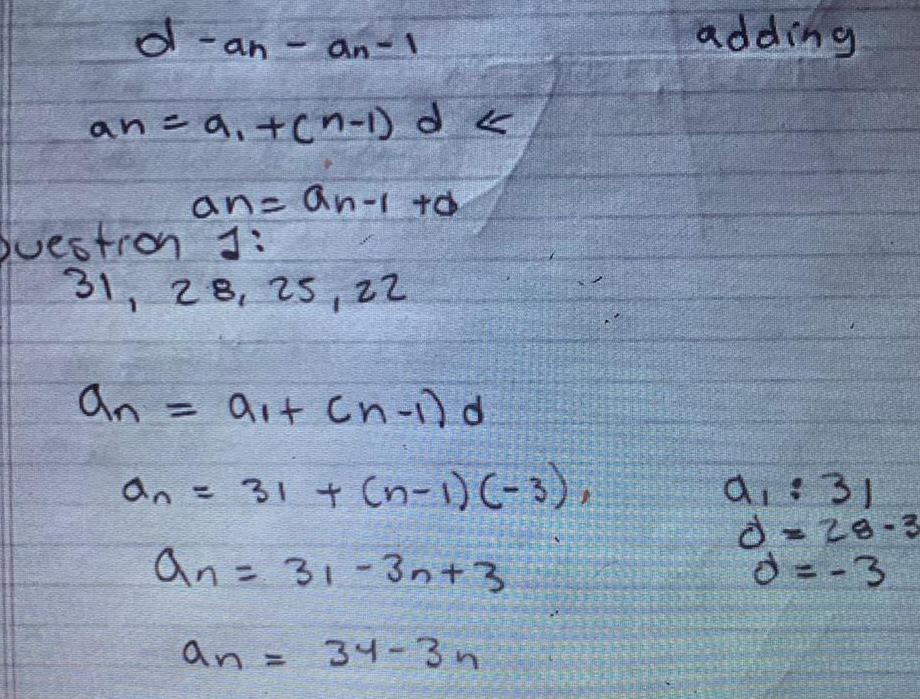 d - an - an-1 adding
an = a1 + (n-1) d <<
an = an-1 + d
Question 1:
31, 28, 25, 22
an = a1 + (n-1) d
an = 31 + (n-1)(-3), a1 : 31
d = 28-3
an = 31 - 3n + 3 d = -3
an = 34 - 3n